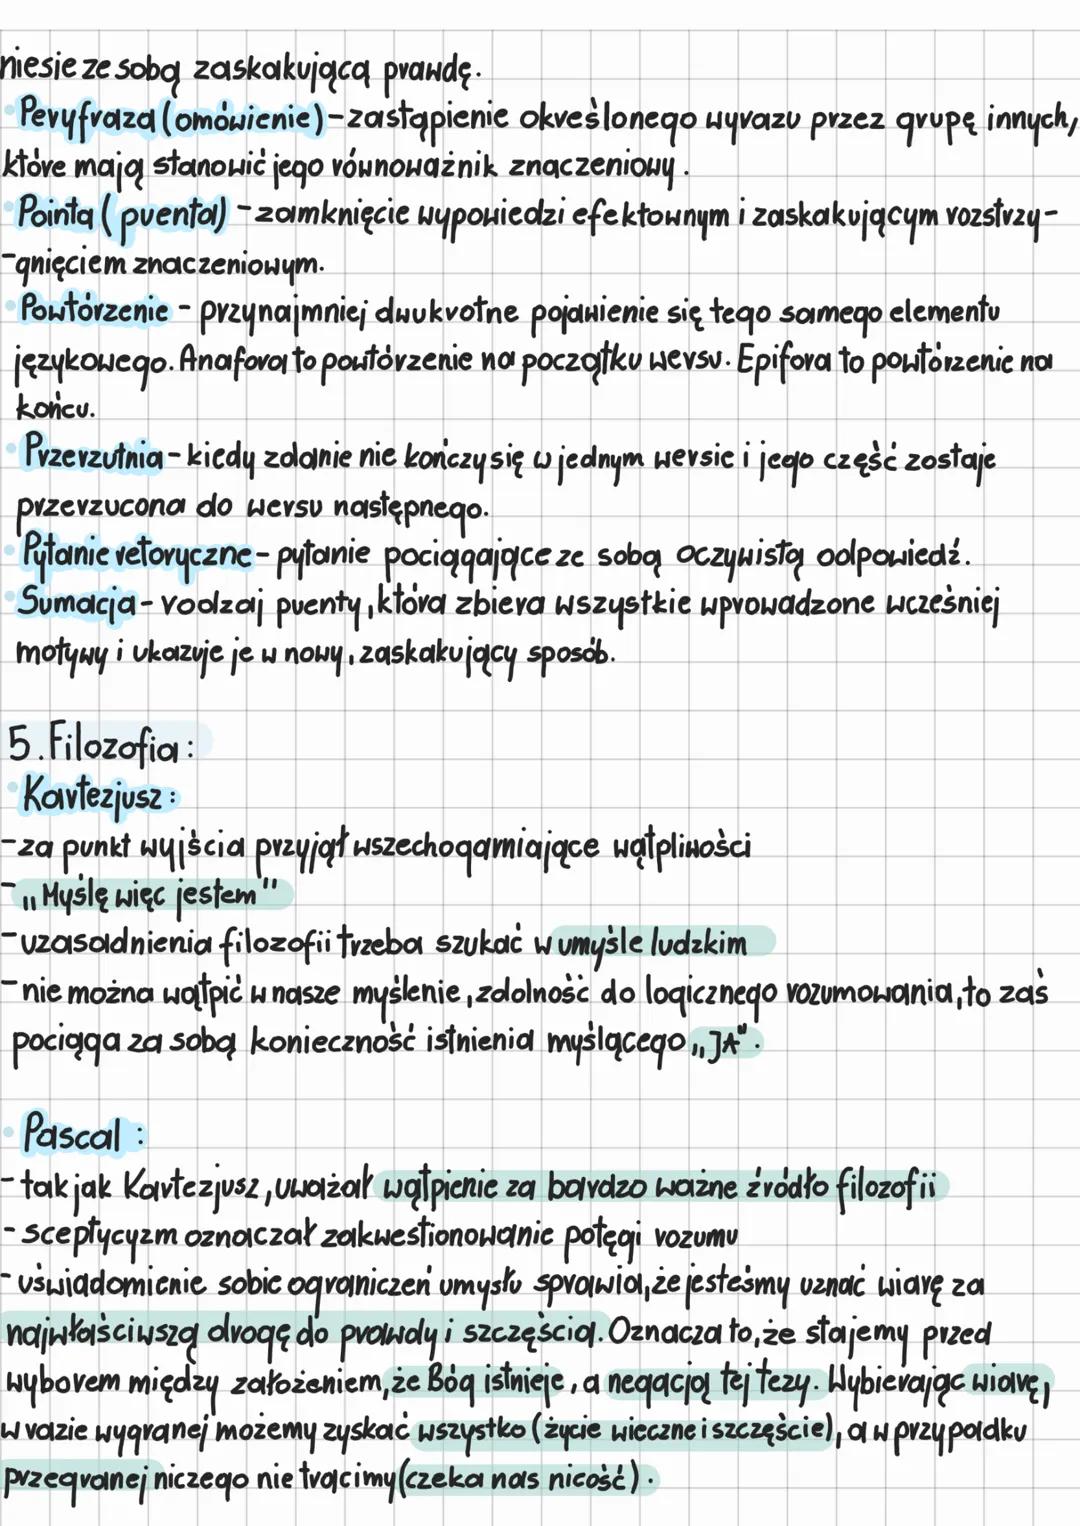 niesie ze sobą zaskakującą prawdę.
• Peryfraza (omówienie) - zastąpienie określonego wyrazu przez grupę innych,
które mają stanowić jego równoważnik znaczeniowy.
• Pointa (puenta) - zamknięcie wypowiedzi efektownym i zaskakującym rozstrzy-
-gnięciem znaczeniowym.
• Powtórzenie - przynajmniej dwukrotne pojawienie się tego samego elementu
językowego. Anafora to powtórzenie na początku wersu. Epifora to powtórzenie na
końcu.
• Przerzutnia - kiedy zdanie nie kończy się w jednym wersie i jego część zostaje
przerzucona do wersu następnego.
• Pytanie retoryczne - pytanie pociągające ze sobą oczywistą odpowiedź.
• Sumacja - rodzaj puenty, która zbiera wszystkie wprowadzone wcześniej
motywy i ukazuje je w nowy, zaskakujący sposób.
5. Filozofia:
• Kartezjusz:
- za punkt wyjścia przyjął wszechogarniające wątpliwości
- „Myślę więc jestem"
- uzasadnienia filozofii trzeba szukać w umyśle ludzkim
- nie można wątpić w nasze myślenie, zdolność do logicznego rozumowania, to zaś
pociąga za sobą konieczność istnienia myślącego „JA".
• Pascal:
- tak jak Kartezjusz, uważał wątpienie za bardzo ważne źródło filozofii
- sceptycyzm oznaczał zakwestionowanie potęgi rozumu
- uświadomienie sobie ograniczeń umysłu sprawia, że jesteśmy uznać wiarę za
najwłaściwszą drogę do prawdy i szczęścia. Oznacza to, że stajemy przed
wyborem między założeniem, że Bóg istnieje, a negacją tej tezy. Wybierając wiarę,
w razie wygranej możemy zyskać wszystko (życie wieczne i szczęście), a w przypadku
przegranej niczego nie tracimy (czeka nas nicość).